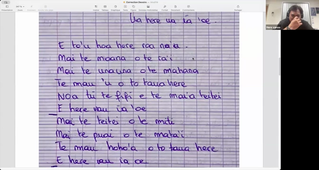 Ua here va ia 'oe
E to'u hoa here roa na a
Mai te moana o te ra'i
Mai te unauna o te mahana
Te mau 'u o to taua here
Noa tu te fifi e te mara'a teitei
E here vau ia 'oe
Mai te teitei o te miti
Mai te puai o te matai
Te mau hoho'a o to taua here
E here vau ia oe